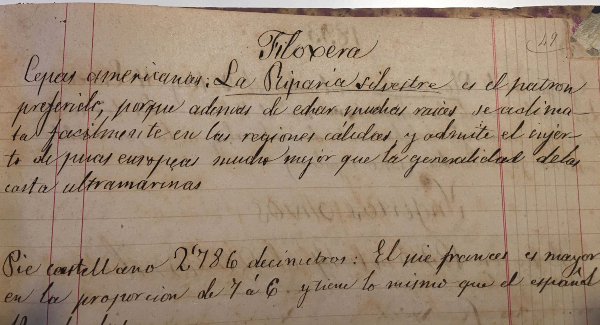 49
Filoxera
Cepas americanas: La Riparia silvestre es el patron
preferido, porque ademas de echar muchas raices, se aclima
ta facilmente en las regiones calidas, y admite el injer-
to de puas europeas mucho mejor que la generalidad de las
casta ultramarinas
Pie castellano 2'786 decimetros: El pie frances es mayor
en la proporcion de 7 á 6 y tiene lo mismo que el español